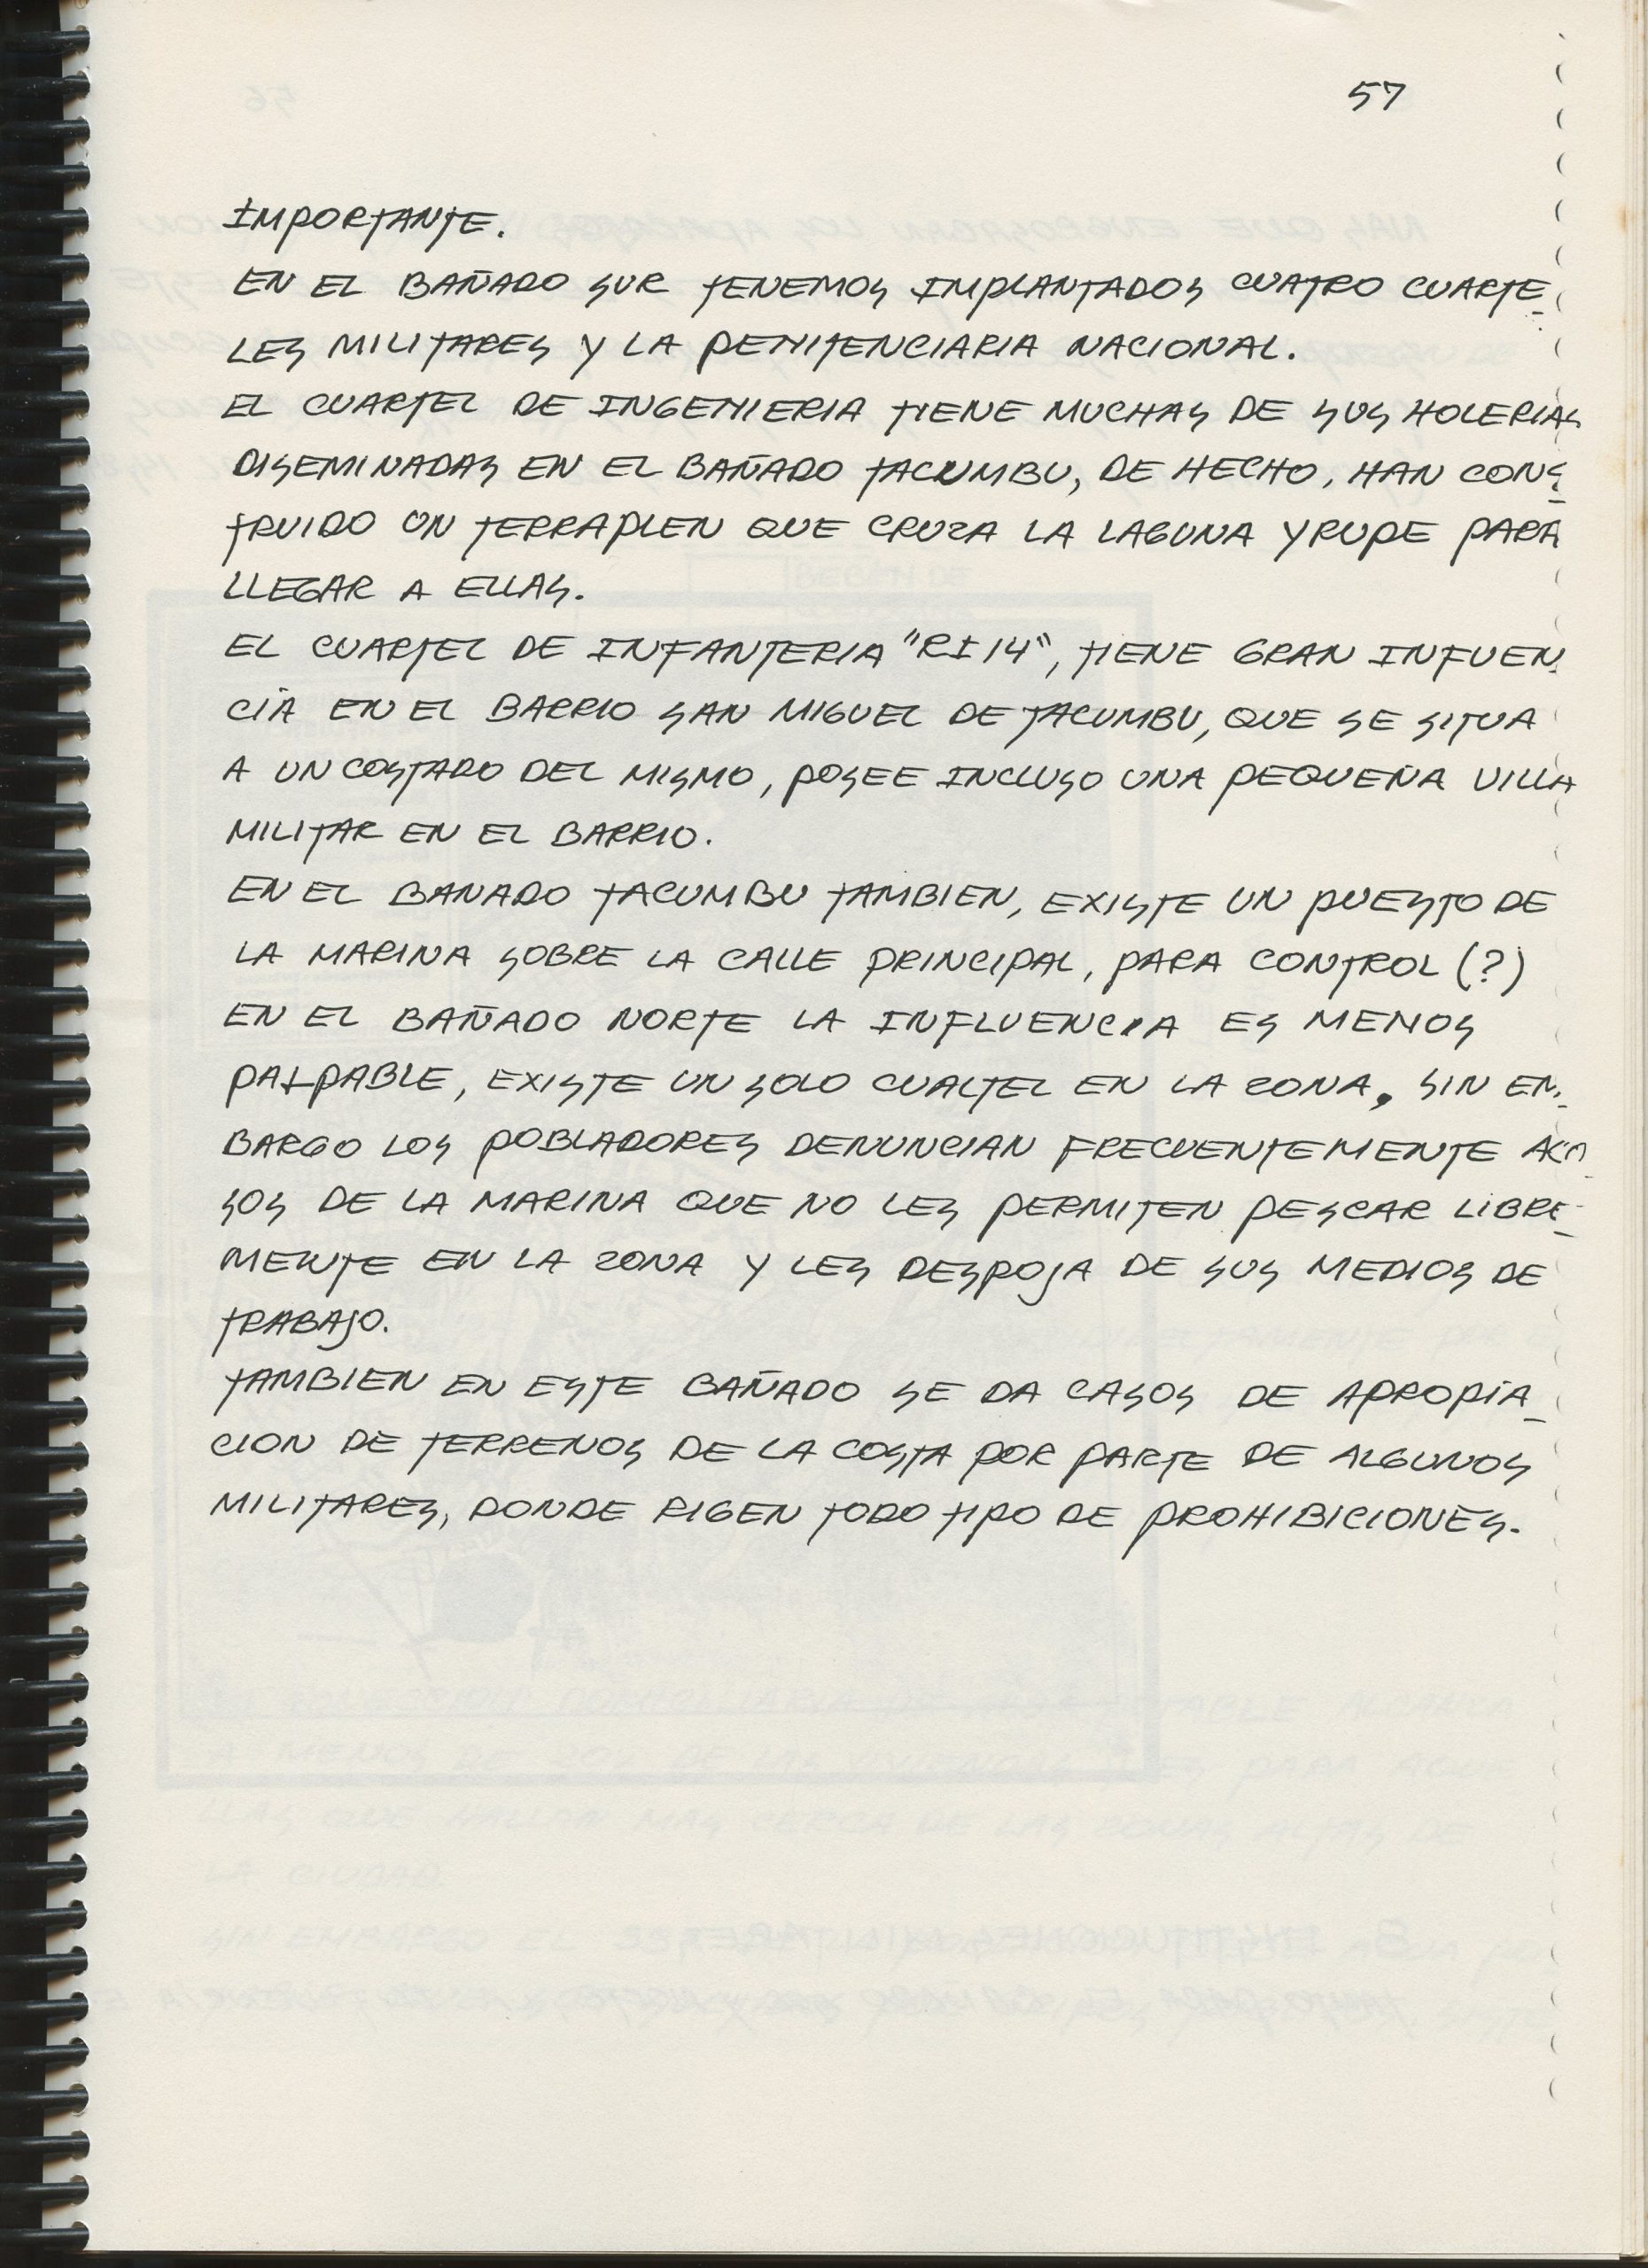 57
IMPORTANTE.
EN EL BAÑADO SUR TENEMOS IMPLANTADOS CUATRO CUARTE_
LES MILITARES Y LA PENITENCIARIA NACIONAL.
EL CUARTEL DE INGENIERIA TIENE MUCHAS DE SUS HOLERIAS
DISEMINADAS EN EL BAÑADO TACUMBU, DE HECHO, HAN CONS_
TRUIDO UN TERRAPLEN QUE CRUZA LA LAGUNA YRUPE PARA
LLEGAR A ELLAS.
EL CUARTEL DE INFANTERIA "RI14", TIENE GRAN INFUEN_
CIA EN EL BARRIO SAN MIGUEL DE TACUMBU, QUE SE SITUA
A UN COSTADO DEL MISMO, POSEE INCLUSO UNA PEQUEÑA VILLA
MILITAR EN EL BARRIO.
EN EL BANADO TACUMBU TAMBIEN, EXISTE UN PUESTO DE
LA MARINA SOBRE LA CALLE PRINCIPAL, PARA CONTROL (?)
EN EL BAÑADO NORTE LA INFLUENCIA ES MENOS
PALPABLE, EXISTE UN SOLO CUALTEL EN LA ZONA, SIN EM_
BARGO LOS POBLADORES DENUNCIAN FRECUENTEMENTE ACO_
SOS DE LA MARINA QUE NO LES PERMITEN PESCAR LIBRE_
MENTE EN LA ZONA Y LES DESPOJA DE SUS MEDIOS DE
TRABAJO.
TAMBIEN EN ESTE BAÑADO SE DA CASOS DE APROPIA_
CION DE TERRENOS DE LA COSTA POR PARTE DE ALGUNOS
MILITARES, DONDE RIGEN TODO TIPO DE PROHIBICIONES.